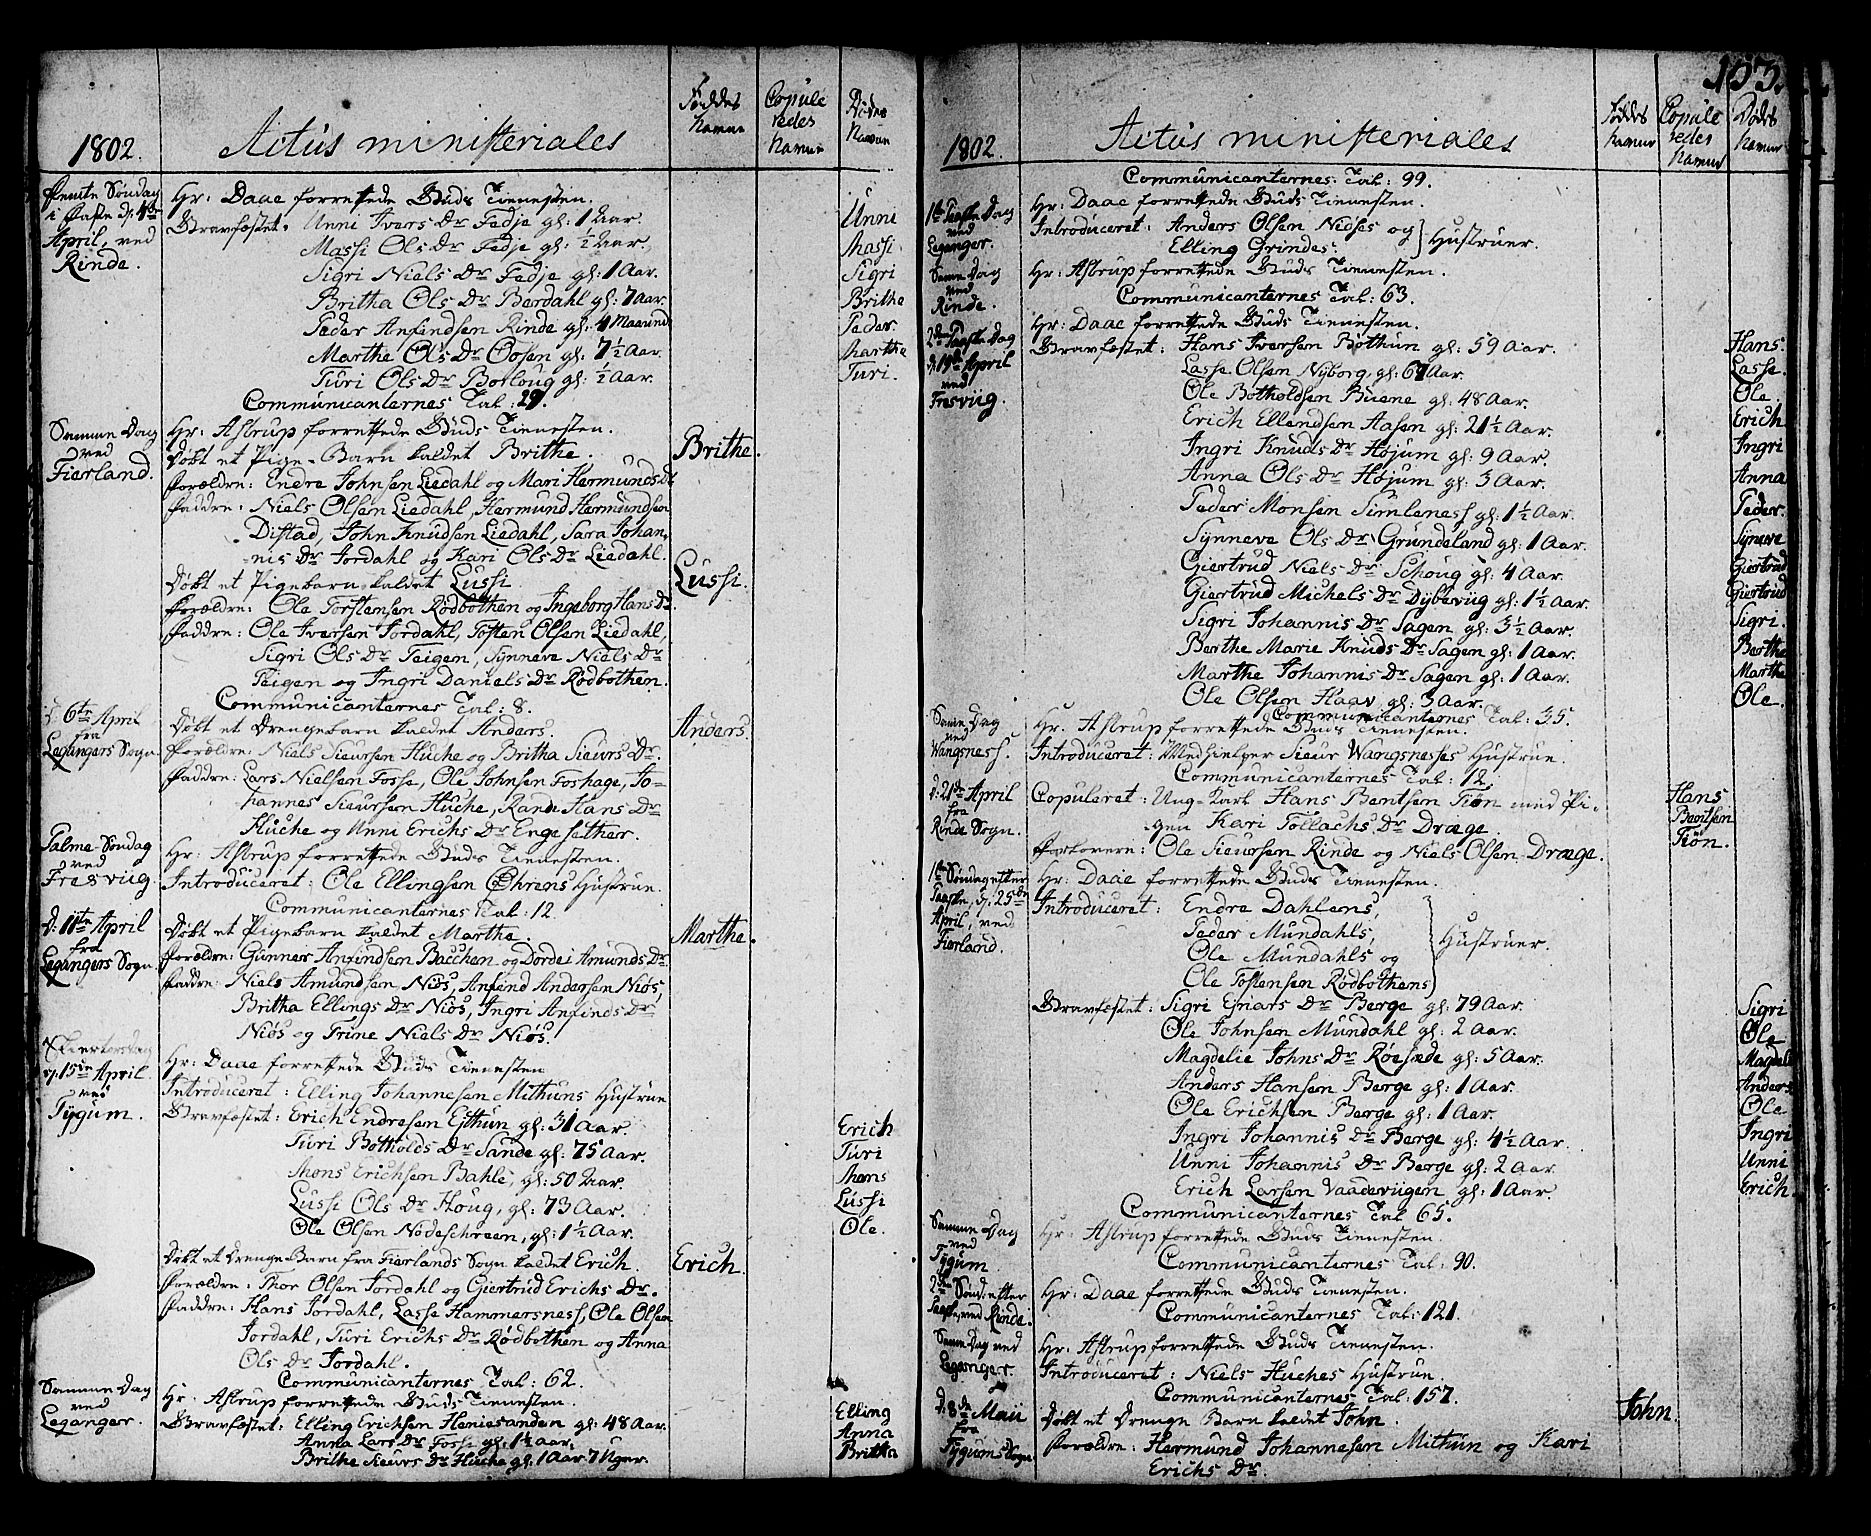 1802.
Actus ministeriales
Føddes Navne
Copuleredes Navne
Dødes Navne
Femte Søndag i Faste d: 4de April, ved Rinde.
Hr: Daae forrettede Guds Tienesten.
Gravfæstet: Unni Ivers Dr Fedje gl: 1 Aar. Unni
Massi Ols Dr Fedje gl: ½ Aar. Massi
Sigri Niels Dr Fedje gl: 1 Aar. Sigri
Britha Ols Dr Berdahl gl: 7 Aar. Britha
Peder Anfindsen Rinde gl: 4 Maaned Peder
Marthe Ols Dr Oosen gl: 7½ Aar. Marthe
Turi Ols Dr Borloug gl: ½ Aar. Turi.
Communicanternes Tal: 29.
Samme Dag ved Fierland.
Hr: Astrup forrettede Guds Tienesten.
Døbt et Pige-Barn kaldet Brithe. Brithe.
Forældre: Endre Johnsen Liedahl og Mari Hermunds Dr
Faddre: Niels Olsen Liedahl, Hermund Hermundsen
Distad, John Knudsen Liedahl, Sara Johan-
nis Dr Jordahl og Kari Ols Dr Liedahl.
Døbt et Pigebarn kaldet Lussi. Lussi.
Forældre: Ole Torstensen Rødbothen og Ingeborg Hans Dr.
Faddre: Ole Iversen Jordahl, Tosten Olsen Liedahl,
Sigri Ols Dr Teigen, Synneve Niels Dr
Teigen og Ingri Daniels Dr Rødbothen.
Communicanternes Tal: 8.
d: 6te April fra Legangers Sogn.
Døbt et Drengebarn kaldet Anders. Anders.
Forældre: Niels Sieursen Huche og Britha Sieurs Dr.
Faddre: Lars Nielsen Fosse, Ole Johnsen Foshage, Jo-
hannes Sieursen Huche, Rande Hans Dr
Huche og Unni Erichs Dr Engesether.
Palme-Søndag ved Fresviig.
Hr: Astrup forrettede Guds Tienesten.
Introduceret: Ole Ellingsen Øhrens Hustrue.
Communicanternes Tal: 12.
D: 11te April fra Legangers Sogn.
Døbt et Pigebarn kaldet Marthe. Marthe.
Forældre: Gunner Anfindsen Bacchen og Dordei Amunds Dr.
Faddre: Niels Amundsen Niøs, Anfind Andersen Niøs,
Britha Ellings Dr Niøs, Ingri Anfinds Dr
Niøs og Trine Niels Dr Niøs.
Skiertorsdag d: 15de April ved Tygum.
Hr: Daae forrettede Guds Tienesten
Introduceret: Elling Johannesen Mithuns Hustrue
Gravfæstet: Erich Endresen Eithun gl: 31 Aar. Erich
Turi Botholds Dr Sande gl: 75 Aar. Turi
Mons Erichsen Bahle, gl: 50 Aar. Mons
Lussi Ols Dr Houg, gl: 73 Aar. Lussi
Ole Olsen Nødeschreen, gl: 1½ Aar. Ole.
Døbt et Drenge-Barn fra Fierlands Sogn kaldet Erich. Erich.
Forældre: Thor Olsen Jordahl og Giertrud Erichs Dr.
Faddre: Hans Jordahl, Lasse Hammersness, Ole Olsen
Jordahl, Turi Erichs Dr Rødbothen og Anna
Ols Dr Jordahl.
Communicanternes Tal: 62.
Samme Dag ved Leganger.
Hr: Astrup forrettede Guds Tienesten.
Gravfæstet: Elling Erichsen Heniesanden gl: 48 Aar. Elling
Anna Lars Dr Fosse gl: 1½ Aar. Anna
Brithe Sieurs Dr Huche gl: 1 Aar 7 Uger. Britha
103.
1802.
Actus ministeriales
Føddes Navne
Copuleredes Navne
Dødes Navne
Communicanternes Tal: 99.
1te Paaske Dag ved Leganger.
Hr: Daae forrettede Guds Tienesten.
Introduceret: Anders Olsen Niøses og
Elling Grindes Hustruer.
Samme Dag ved Rinde.
Hr: Astrup forrettede Guds Tienesten.
Communicanternes Tal: 63.
2den Paaske Dag d: 19de April ved Fresviig.
Hr: Daae forrettede Guds Tienesten.
Gravfæstet: Hans Iversen Bothun gl: 59 Aar. Hans.
Lasse Olsen Nyborg, gl: 67 Aar. Lasse.
Ole Botholdsen Buene gl: 48 Aar. Ole.
Erich Ellendsen Aasen gl: 21½ Aar. Erich
Ingri Knuds Dr Højum gl: 9 Aar. Ingri
Anna Ols Dr Højum gl: 3 Aar. Anna
Peder Monsen Simleness gl: 1½ Aar. Peder.
Synneve Ols Dr Grundeland gl: 1 Aar. Synneve
Giertrud Niels Dr Schoug gl: 4 Aar. Giertrud
Giertrud Michels Dr Dybeviig gl: 1½ Aar. Giertrud
Sigri Johannis Dr Sagen gl: 3½ Aar. Sigri.
Berthe Marie Knuds Dr Sagen gl: 1 Aar. Berthe
Marthe Johannis Dr Sagen gl: 1 Aar. Marthe
Ole Olsen Haav gl: 3 Aar. Ole.
Communicanternes Tal: 35.
Samme Dag ved Wangsness.
Hr: Astrup forrettede Guds Tienesten.
Introduceret: Medhielper Sieur Wangsnesses Hustrue.
Communicanternes Tal: 12.
d: 21de April fra Rinde Sogn.
Copuleret: Ung-Karl Hans Bentsen Tiøn med Pi-
gen Kari Tollachs Dr Dræge. Hans Bentsen Tiøn.
Forlovere: Ole Sieursen Rinde og Niels Olsen Dræge.
1te Søndag efter Paaske, d: 25de April, ved Fierland.
Hr: Daae forrettede Guds Tienesten.
Introduceret: Endre Dahlens,
Peder Mundahls,
Ole Mundahls og
Ole Tostensen Rødbothens Hustruer.
Gravfæstet: Sigri Einars Dr Berge gl: 79 Aar. Sigri
Ole Johnsen Mundahl gl: 2 Aar. Ole
Magdelie Johns Dr Røesnde gl: 5 Aar. Magdeli
Anders Hansen Berge gl: 1 Aar. Anders
Ole Erichsen Berge gl: 1 Aar. Ole
Ingri Johannis Dr Berge gl: 4½ Aar. Ingri
Unni Johannis Dr Berge gl: 2 Aar. Unni
Erich Larsen Vaadeviigen gl: 1 Aar. Erich.
Communicanternes Tal 65.
Samme Dag ved Tygum
Hr: Astrup forrettede Guds Tienesten.
Communicanternes Tal: 90.
2den Sønd: efter Paaske, ved Rinde.
Hr: Daae forrettede Guds Tienesten.
Communicanternes Tal: 121.
Samme Dag ved Leganger.
Hr: Astrup forrettede Guds Tienesten.
Introduceret: Niels Huches Hustrue.
Communicanternes Tal: 157.
d: 8de Maii fra Tygums Sogn
Døbt et Drenge Barn kaldet John. John.
Forældre: Hermund Johannesen Mithun og Kari
Erichs Dr.